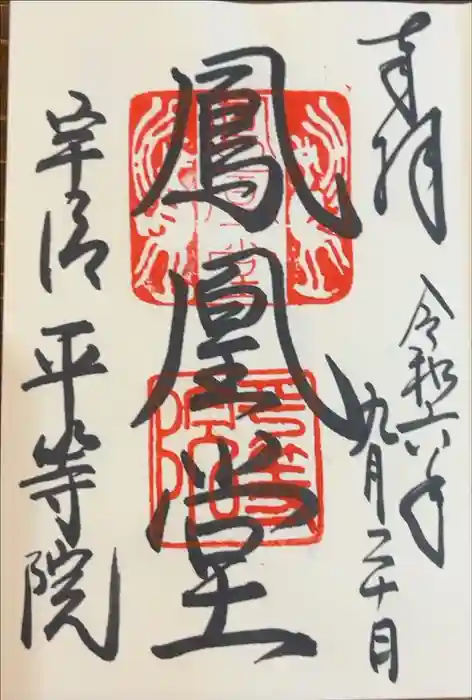 奉拝
令和六年
九月二十日
鳳凰堂
宇治 平等院
平等院